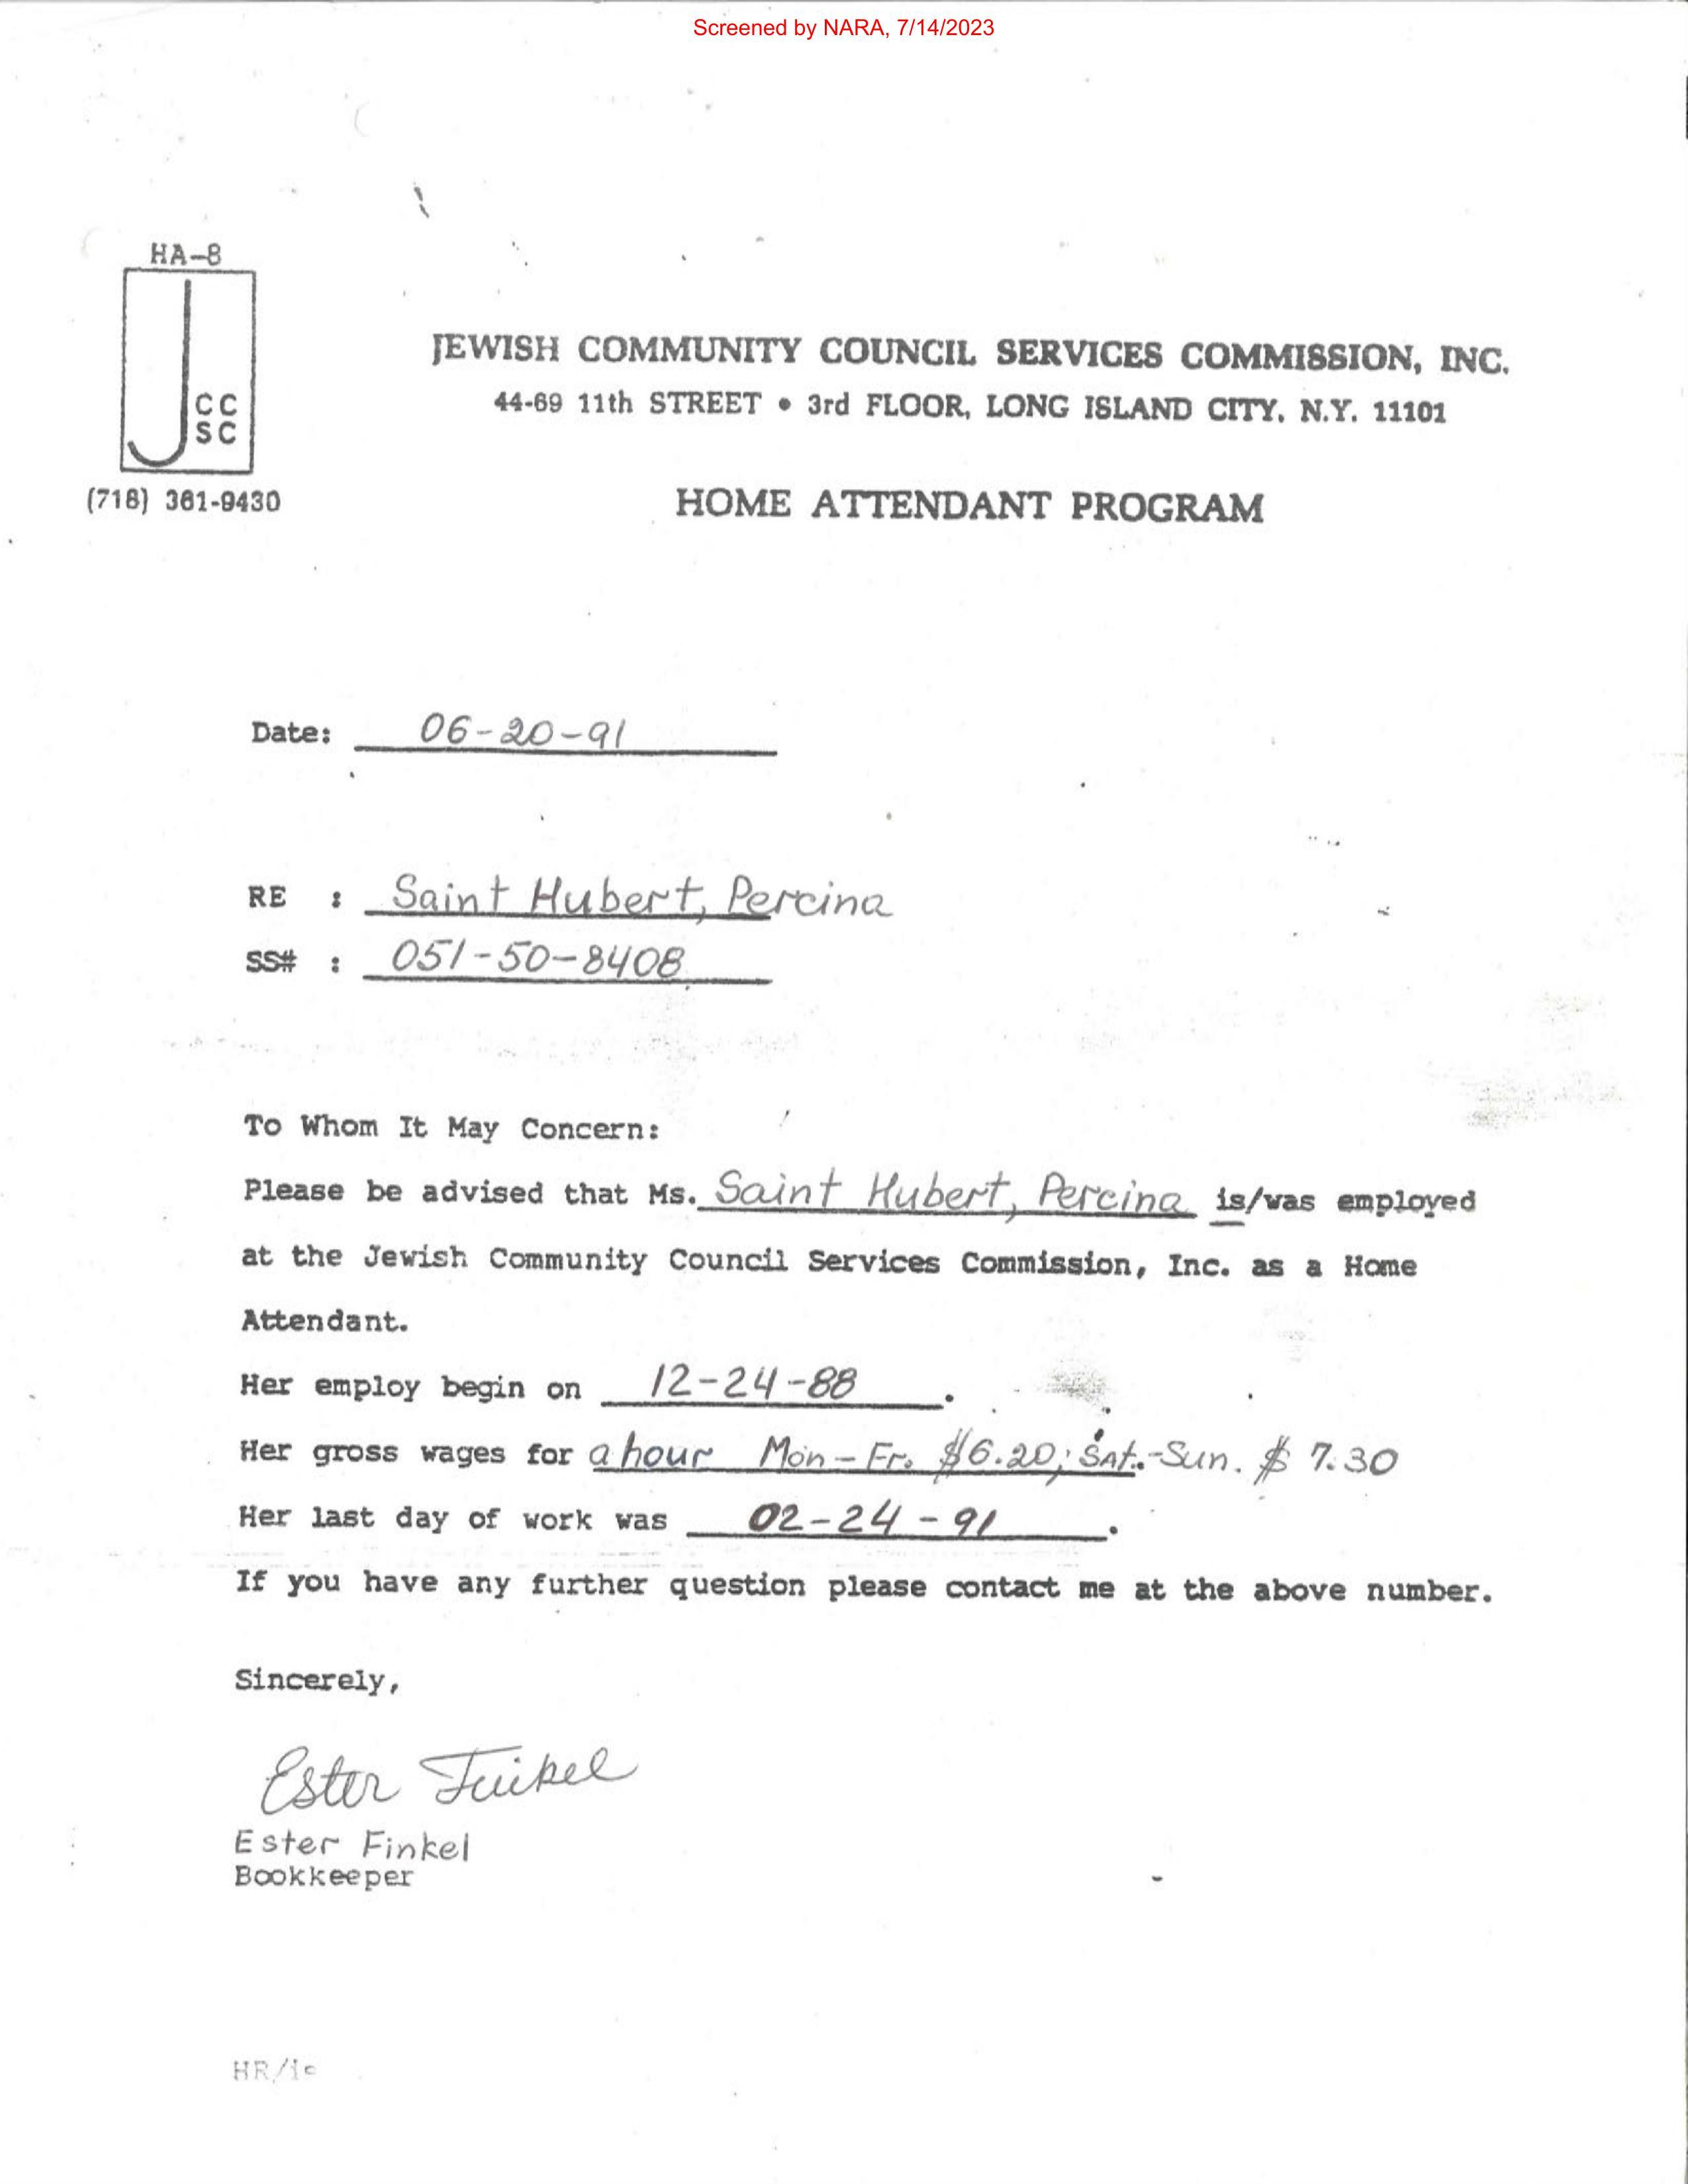 Screened by NARA, 7/14/2023
HA-8
J
CC
SC
(718) 361-9430
JEWISH COMMUNITY COUNCIL SERVICES COMMISSION, INC.
44-69 11th STREET • 3rd FLOOR, LONG ISLAND CITY, N.Y. 11101
HOME ATTENDANT PROGRAM
Date: 06-20-91
RE : Saint Hubert, Percina
SS# : 051-50-8408
To Whom It May Concern:
Please be advised that Ms. Saint Hubert, Percina is/was employed
at the Jewish Community Council Services Commission, Inc. as a Home
Attendant.
Her employ begin on 12-24-88.
Her gross wages for a hour Mon-Fr. $6.20; SAt.-Sun. $ 7.30
Her last day of work was 02-24-91.
If you have any further question please contact me at the above number.
Sincerely,
Ester Finkel
Ester Finkel
Bookkeeper